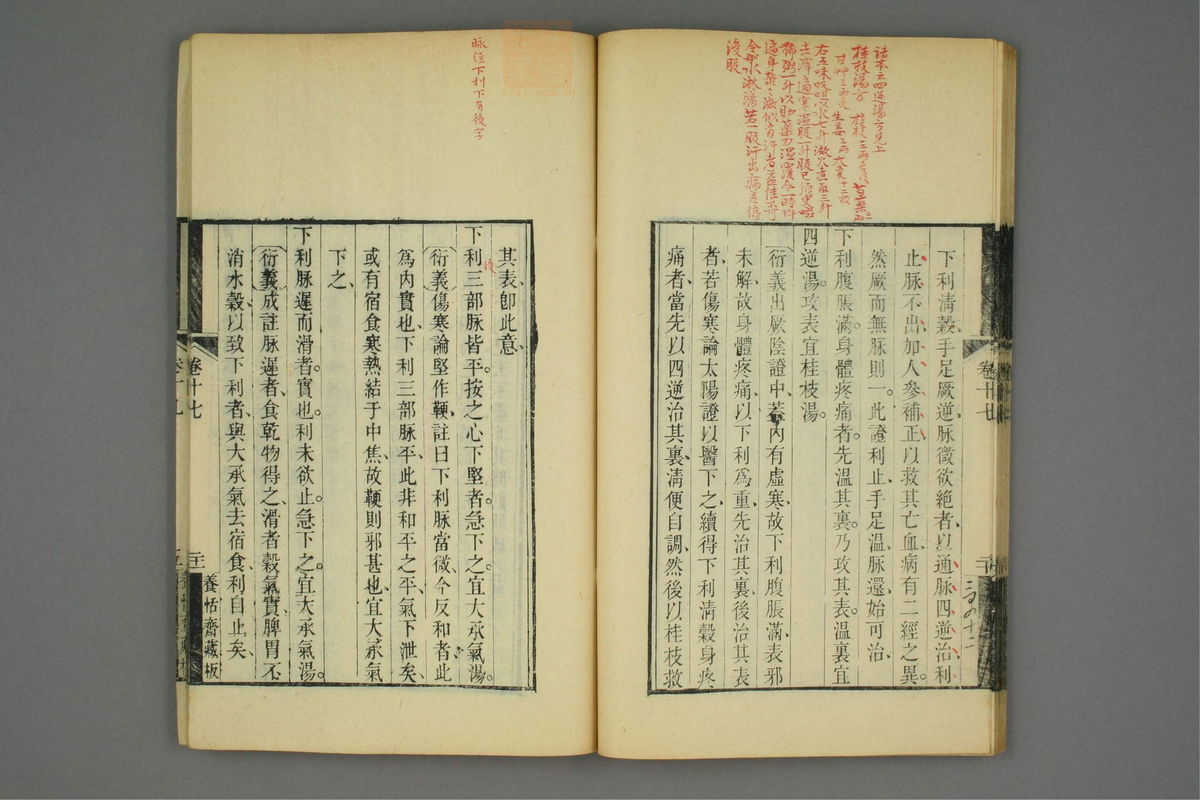 諸本云四逆湯方見上
桂枝湯方 桂枝三兩去皮 芍藥三兩
甘艸三兩炙 生姜三兩 大棗十二枚
右五味㕮咀以水七升微火煮取三升
去滓適寒溫服一升服已須臾啜
稀粥一升以助藥力溫覆令一時許
遍身漐漐微似有汗者益佳不可
令如水淋漓若一服汗出病差停
後服
下利清穀手足厥逆脈微欲絕者以通脈四逆治利
止脈不出加人參補正以救其亡血病有二經之異
然厥而無脈則一此證利止手足溫脈還始可治
下利腹脹滿身體疼痛者先溫其裏乃攻其表溫裏宜
四逆湯攻表宜桂枝湯
衍義出厥陰證中蓋內有虛寒故下利腹脹滿表邪
未解故身體疼痛以下利爲重先治其裏後治其表
者若傷寒論太陽證以醫下之續得下利清穀身疼
痛者當先以四逆治其裏清便自調然後以桂枝救
卷十七
脉經下利下有後字
其表卽此意
下利三部脈皆平按之心下堅者急下之宜大承氣湯
後
衍義傷寒論堅作鞕註曰下利脈當微今反和者此
爲內實也下利三部脈平此非和平之平氣下泄矣
或有宿食寒熱結于中焦故鞕則邪甚也宜大承氣
下之
下利脈遲而滑者實也利未欲止急下之宜大承氣湯
衍義成註脈遲者食乾物得之滑者穀氣實脾胃不
消水穀以致下利者與大承氣去宿食利自止矣
卷十七
養恬齋藏板